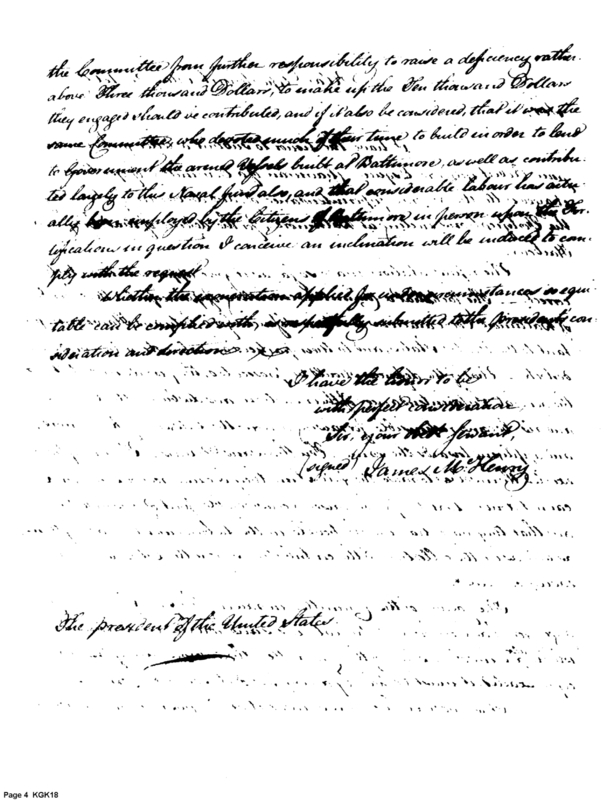 the Committee from further responsibility to raise a deficiency rather
above Three thousand Dollars, to make up the Ten thousand Dollars
they engaged should be contributed, and if it also be considered, that it was the
same Committee, who devoted much of their time to build in order to lend
to Government the armed Vessels built at Baltimore, as well as contribu-
ted largely to this Naval fund also, and that considerable labour has actu-
ally been employed by the Citizens of Baltimore in person upon the For-
tifications in question I conceive an inclination will be induced to com-
ply with the request
Whether the remuneration applied for under circumstances so equi-
table can be complied with, is respectfully submitted to the presidents con-
sideration and direction
I have the honor to be
with perfect consideration
Sir, your Obt. Servant,
(signed) James McHenry
The president of the United States
Page 4 KGK18